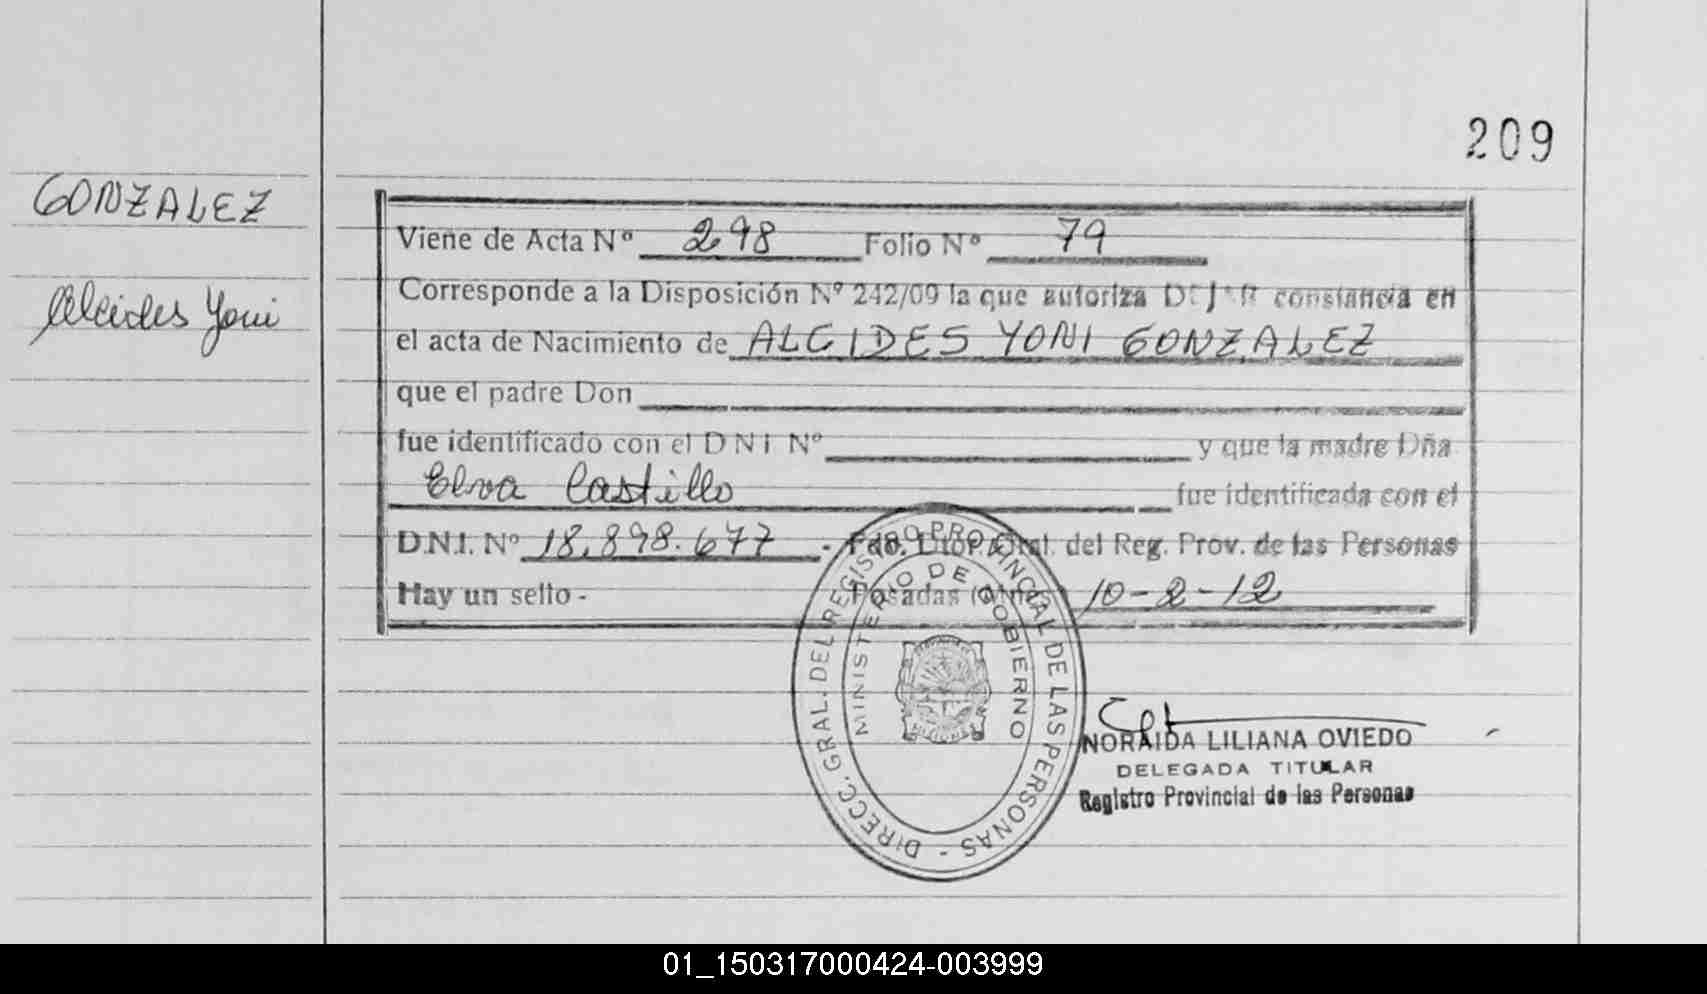 209
GONZALEZ
Alcides Yoni
Viene de Acta Nº 298 Folio Nº 79
Corresponde a la Disposición Nº 242/09 la que autoriza DEJAR constancia en
el acta de Nacimiento de ALCIDES YONI GONZALEZ
que el padre Don
fue identificado con el DNI Nº y que la madre Dña
Elva Castillo fue identificada con el
D.N.I. Nº 18.898.677 - Fdo. Dtor. Gral. del Reg. Prov. de las Personas
Hay un sello - Posadas (Mnes) 10-2-12
DIRECC. GRAL. DEL REGISTRO PROVINCIAL DE LAS PERSONAS -
MINISTERIO DE GOBIERNO
NORAIDA LILIANA OVIEDO
DELEGADA TITULAR
Registro Provincial de las Personas
01_150317000424-003999